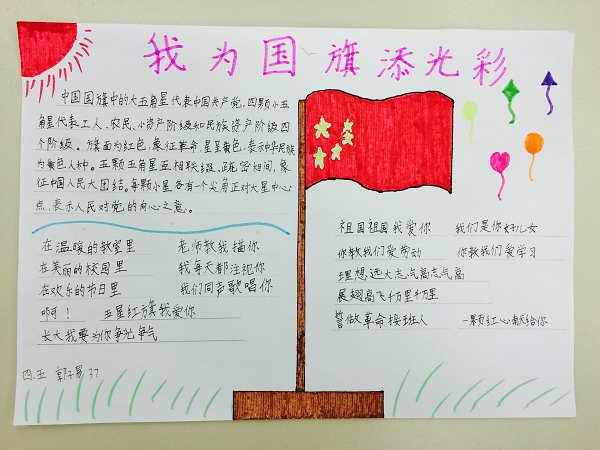 我为国旗添光彩
中国国旗中的大五角星代表中国共产党，四颗小五
角星代表工人、农民、小资产阶级和民族资产阶级四
个阶级。旗面为红色，象征革命，星呈黄色，表示中华民族
为黄色人种。五颗五角星互相联缀、疏密相间，象
征中国人民大团结。每颗小星各有一个尖角正对大星中心
点，表示人民对党的向心之意。
在温暖的教室里 老师教我描你
在美丽的校园里 我每天都注视你
在欢乐的节日里 我们同声歌唱你
啊！ 五星红旗我爱你
长大我要为你争光争气
四.五 郭子 37
祖国祖国我爱你 我们是你好儿女
你教我们爱劳动 你教我们爱学习
理想远大志气高志气高
展翅高飞千万里千万里
誓做革命接班人 一颗红心献给你